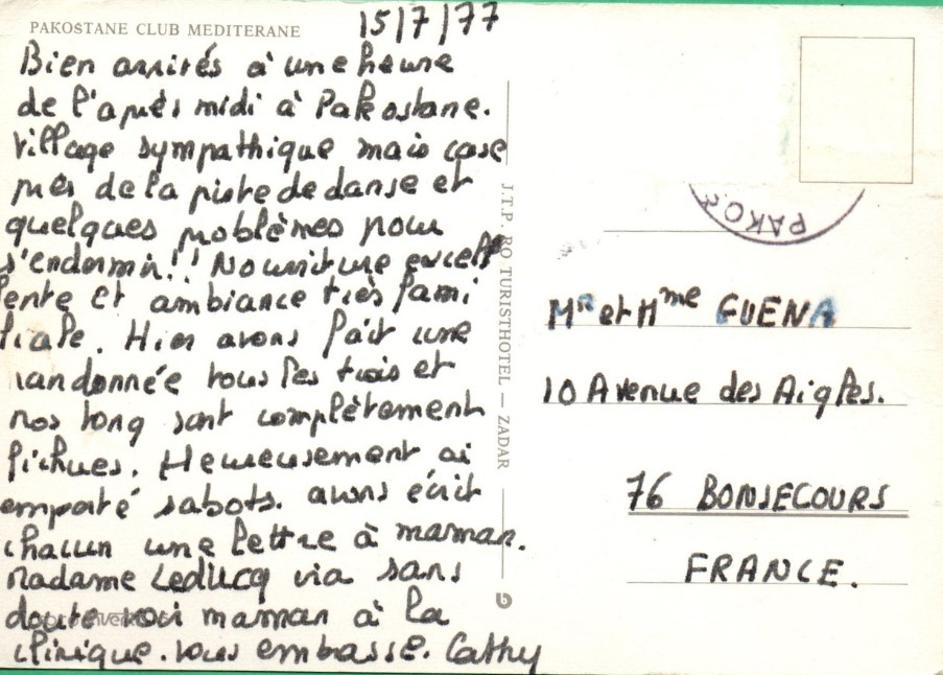 PAKOŠTANE CLUB MEDITERANE
15/7/77
Bien arrivés à une heure
de l'après midi à Pakostane.
Village sympathique mais case
près de la piste de danse et
quelques problèmes pour
s'endormir!! Nourriture excell
ente et ambiance très fami
liale. Hier avons fait une
randonnée tous les trois et
nos tong sont complètement
fichues. Heureusement ai
emporté sabots. avons écrit
chacun une lettre à maman.
Madame Leducq via sans
doute voir maman à la
clinique. vous embasse. Cathy
J.T.P. RO TURISTHOTEL — ZADAR
PAKOŠ
Mr et Mme GUENA
10 Avenue des Aigles.
76 BONSECOURS
FRANCE.